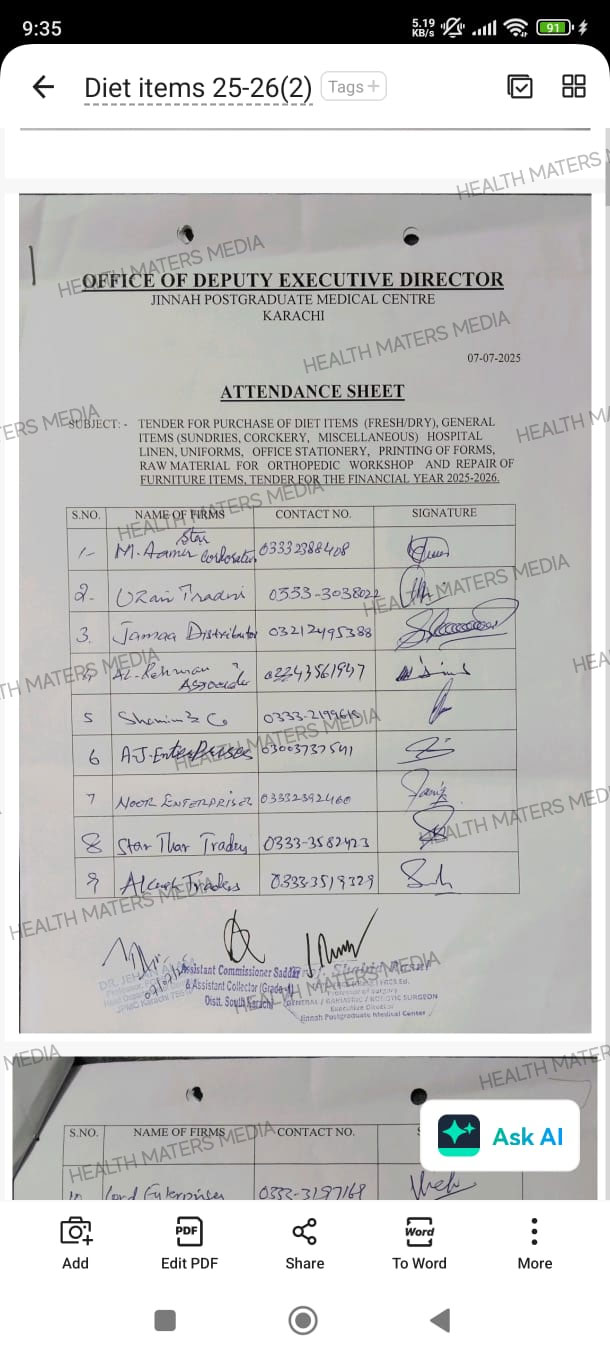 9:35
5.19
KB/s
91
Diet items 25-26(2)
Tags+
HEALTH MATERS MEDIA
OFFICE OF DEPUTY EXECUTIVE DIRECTOR
JINNAH POSTGRADUATE MEDICAL CENTRE
KARACHI
07-07-2025
ATTENDANCE SHEET
SUBJECT: - TENDER FOR PURCHASE OF DIET ITEMS (FRESH/DRY), GENERAL
ITEMS (SUNDRIES, CORCKERY, MISCELLANEOUS) HOSPITAL
LINEN, UNIFORMS, OFFICE STATIONERY, PRINTING OF FORMS,
RAW MATERIAL FOR ORTHOPEDIC WORKSHOP AND REPAIR OF
FURNITURE ITEMS, TENDER FOR THE FINANCIAL YEAR 2025-2026.
S.NO. NAME OF FIRMS CONTACT NO. SIGNATURE
1- M. Aamer Star Corporation 03332388408
2. 0333-3038022
3. Jamaa Distributor 03212495388
Al-Rehman Associates
5 Shamim & Co
6 A.J. Enterprises 03003737541
7 NOOR ENTERPRISES 03332392460
8 Star Thar Traders 0333-3582423
9 Traders 03333519329
Assistant Commissioner Saddar
& Assistant Collector (Grade-I)
Distt. South Karachi
GENERAL / BARIATRIC / ROBOTIC SURGEON
Executive Director
Jinnah Postgraduate Medical Center
S.NO. NAME OF FIRMS CONTACT NO.
10 Lord Enterprises 0332-3197169
Ask AI
Add
Edit PDF
Share
To Word
More